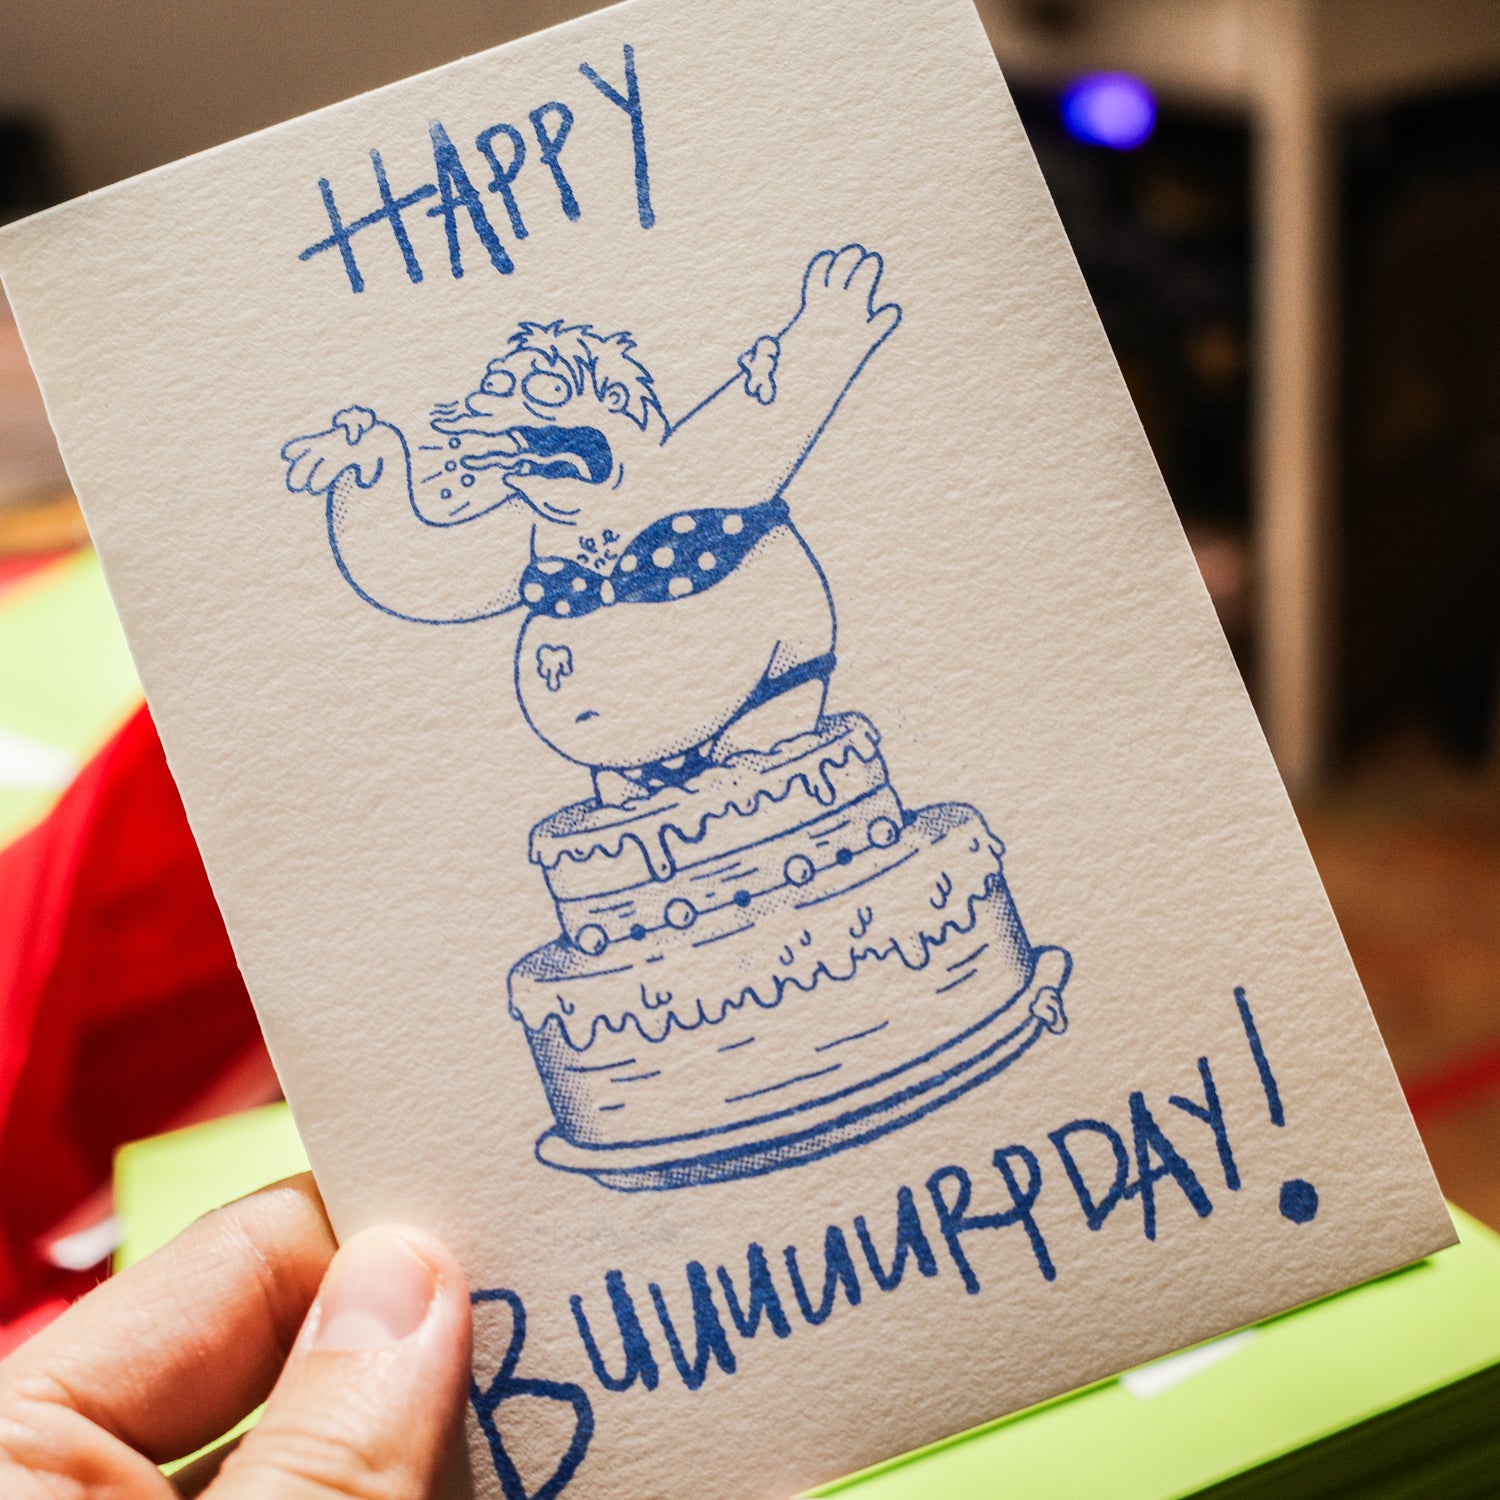 HAPPY
BUUUUURPDAY!